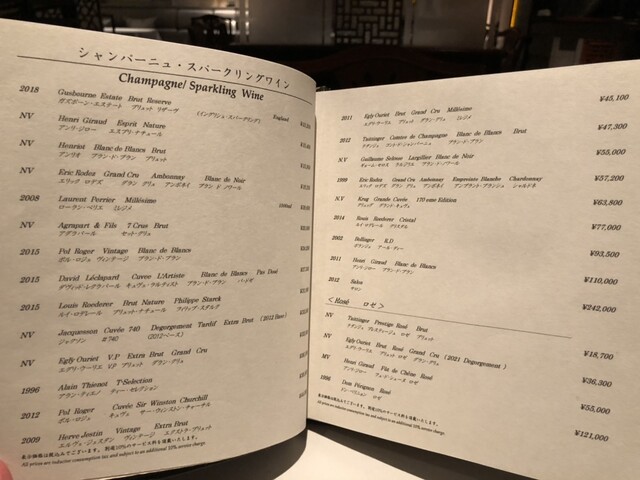 シャンパーニュ・スパークリングワイン
Champagne/ Sparkling Wine
2018 Gusbourne Estate Brut Reserve England
ガズボーン・エステート ブリュット リザーヴ (イングリッシュ・スパークリング)
NV Henri Giraud Esprit Nature
アンリ・ジロー エスプリ・ナチュール
NV Henriot Blanc de Blancs Brut
アンリオ ブラン・ド・ブラン ブリュット
NV Eric Rodez Grand Cru Ambonnay Blanc de Noir
エリック ロデズ グラン クリュ アンボネイ ブラン ド ノワール
2008 Laurent Perrier Millésime
ローラン・ペリエ ミレジメ
NV Agrapart & Fils 7 Crus Brut
アグラパール セット・クリュ
2015 Pol Roger Vintage Blanc de Blancs
ポル・ロジェ ヴィンテージ ブラン・ド・ブラン
2015 David Léclapard Cuvee L'Artiste Blanc de Blancs Pas Dosé
ダヴィッド・レクラパール キュヴェ・ラルティスト ブラン・ド・ブラン パ・ドゼ
2015 Louis Roederer Brut Nature Philippe Starck
ルイ・ロデレール ブリュット・ナチュール フィリップ・スタルク
NV Jacquesson Cuvée 740 Degorgement Tardif Extra Brut (2012 Base)
ジャクソン #740 (2012ベース)
NV Egly Ouriet V.P Extra Brut Grand Cru
エグリ・ウーリエ V.P ブリュット グラン・クリュ
1996 Alain Thienot T-Selection
アラン・ティエノ ティー・セレクション
2012 Pol Roger Cuvée Sir Winston Churchill
ポル・ロジェ キュヴェ サー・ウィンストン・チャーチル
2009 Herve Jestin Vintage Extra Brut
エルヴェ・ジェスタン ヴィンテージ エクストラ・ブリュット
表示価格は税込みでございます。別途10%のサービス料を頂戴いたします。
All prices are inductive consumption tax and subject to an additional 10% service charge.
2011 Egly Ouriet Brut Grand Cru Millésime ¥45,100
エグリ・ウーリエ ブリュット グラン・クリュ ミレジメ
2012 Taittinger Comtes de Champagne Blanc de Blancs Brut ¥47,300
テタンジェ コント・ド・シャンパーニュ ブラン・ド・ブラン
N.V Guillaume Selosse Largillier Blanc de Noir ¥55,000
ギョーム・セロス ラルジリエ ブラン・ド・ノワール
1999 Eric Rodez Grand Cru Ambonnay Empreinte Blanche Chardonnay ¥57,200
エリック ロデズ グラン クリュ アンボネイ アンプラント・ブランシュ シャルドネ
N.V Krug Grande Cuvée 170 eme Edition ¥63,800
クリュッグ グランド・キュヴェ
2014 Louis Roederer Cristal ¥77,000
ルイ・ロデレール クリスタル
2002 Bollinger R.D ¥93,500
ボランジェ アール・ディー
2011 Henri Giraud Blanc de Blancs ¥110,000
アンリ・ジロー ブラン・ド・ブラン
2012 Salon ¥242,000
サロン
<Rosé ロゼ>
NV Taittinger Prestige Rosé Brut ¥18,700
テタンジェ プレスティージュ ロゼ ブリュット
NV Egly Ouriet Brut Rosé Grand Cru (2021 Degorgement) ¥36,300
エグリ・ウーリエ ブリュット ロゼ グラン・クリュ
MV Henri Giraud Fût de Chêne Rosé ¥55,000
アンリ・ジロー フュ・ド・シェーヌ ロゼ
1996 Dom Pérignon Rosé ¥121,000
ドン・ペリニヨン ロゼ
表示価格は税込みでございます。別途10%のサービス料を頂戴いたします。
All prices are inductive consumption tax and subject to an additional 10% service charge.